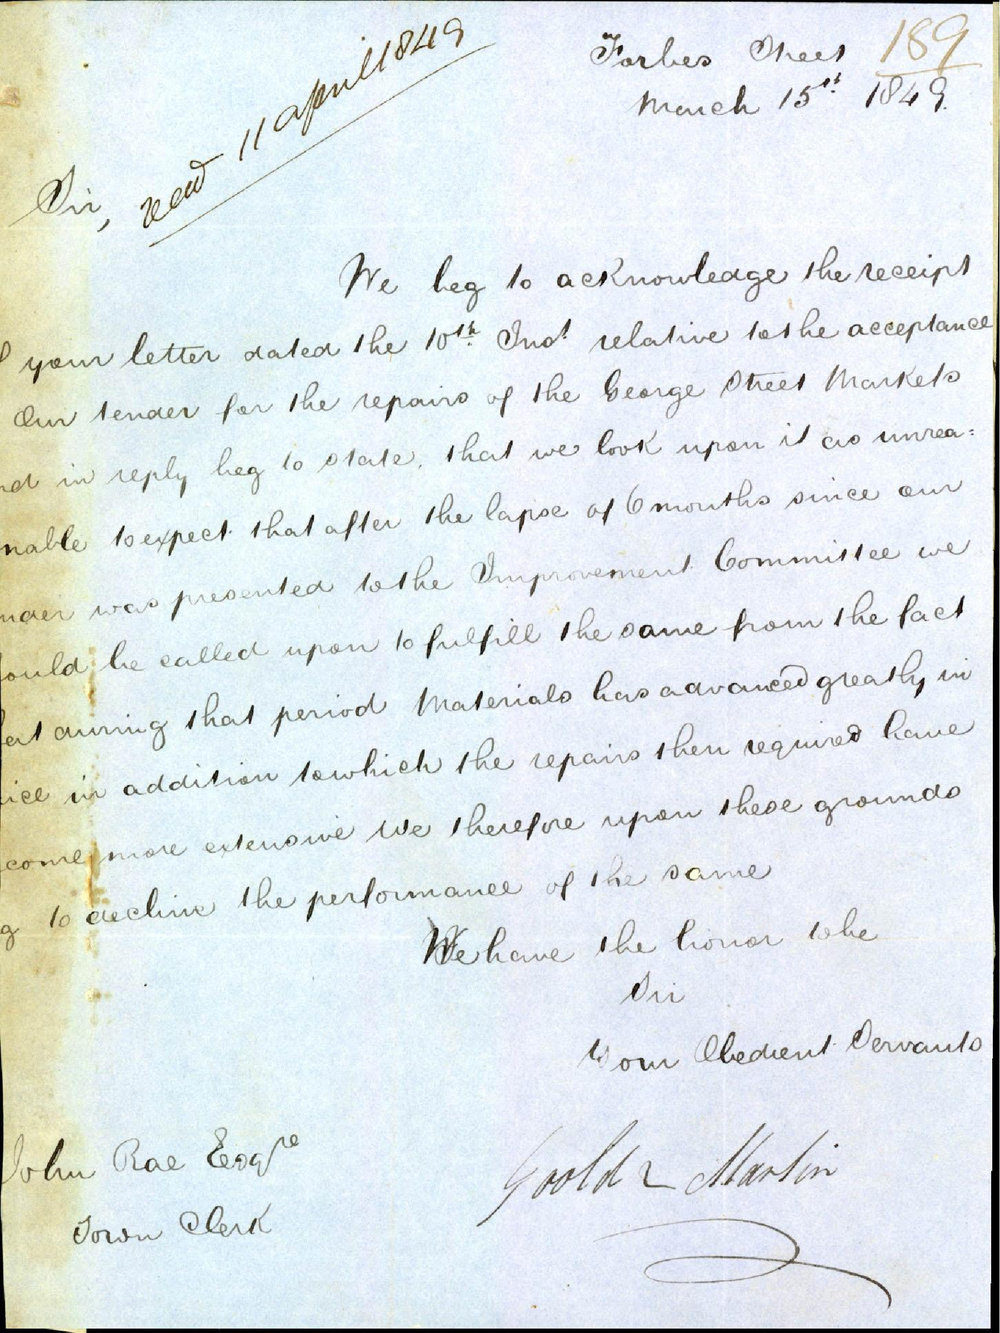 189
Forbes Street
March 15th 1849.
recd 11 april 1849
Sir,
We beg to acknowledge the receipt
your letter dated the 10th Inst relative to the acceptance
Our tender for the repairs of the George Street Markets
nd in reply beg to state, that we look upon it as unrea=
nable to expect that after the lapse of 6 months since our
nder was presented to the Improvement Committee we
ould be called upon to fulfill the same from the fact
at during that period Materials has advanced greatly in
ice in addition to which the repairs then required have
come more extensive We therefore upon these grounds
g to decline the performance of the same
We have the honor to be
Sir
Your Obedient Servants
Goold & Martin
John Rae Esqre
Town Clerk